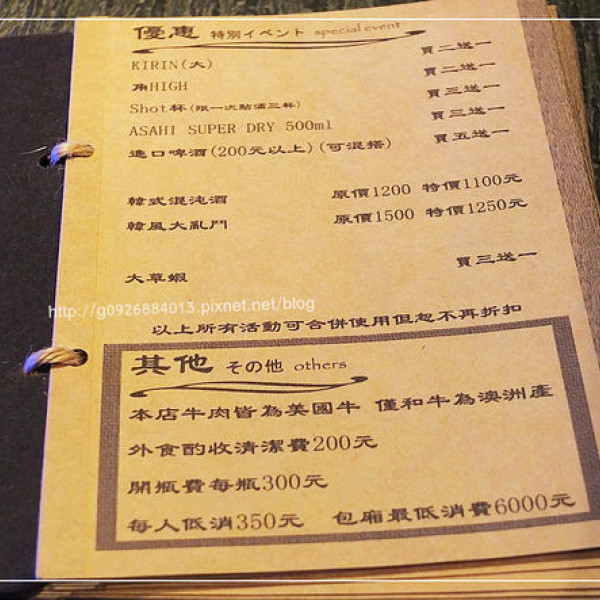 優惠 特別イベント special event
KIRIN(大) 買二送一
角HIGH 買二送一
Shot杯(限一次點滿三杯) 買三送一
ASAHI SUPER DRY 500ml 買三送一
進口啤酒(200元以上)(可混搭) 買五送一
韓式混沌酒 原價1200 特價1100元
韓風大亂鬥 原價1500 特價1250元
大草蝦 買三送一
http://g0926884013.pixnet.net/blog
以上所有活動可合併使用但恕不再折扣
其他 その他 others
本店牛肉皆為美國牛 僅和牛為澳洲產
外食酌收清潔費200元
開瓶費每瓶300元
每人低消350元 包廂最低消費6000元